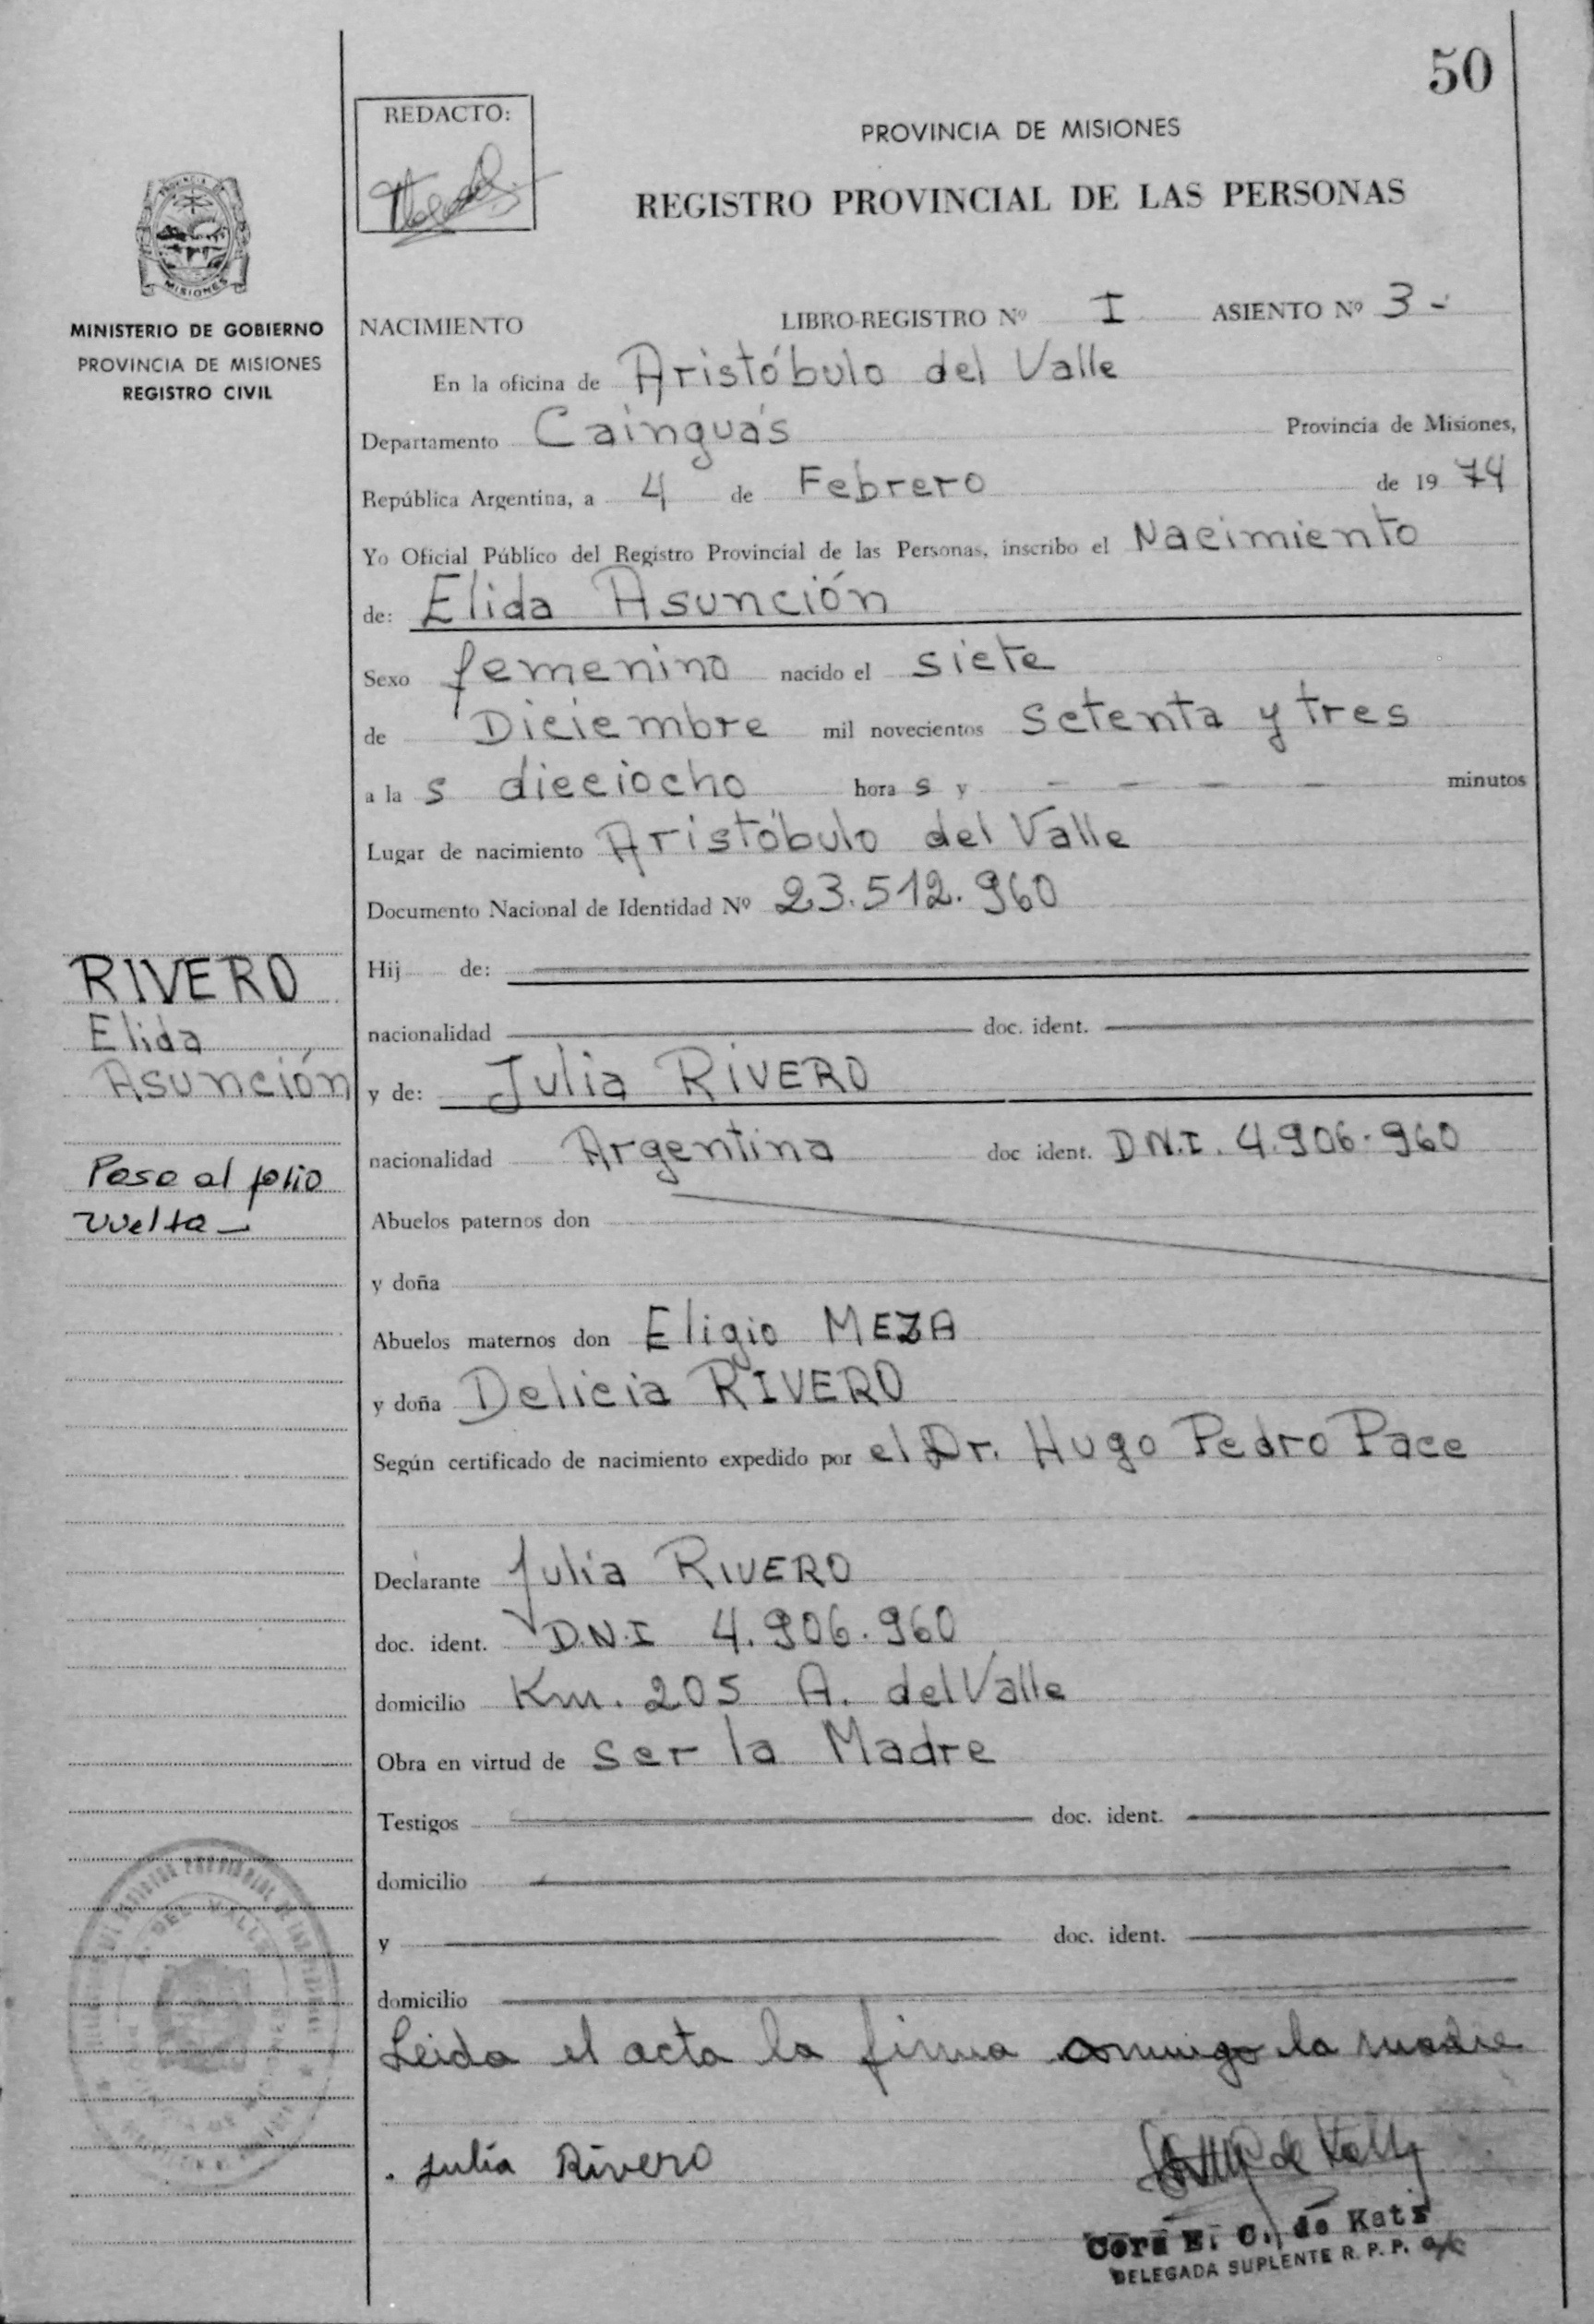 50
REDACTO:
PROVINCIA DE MISIONES
REGISTRO PROVINCIAL DE LAS PERSONAS
MISIONES
MINISTERIO DE GOBIERNO
PROVINCIA DE MISIONES
REGISTRO CIVIL
NACIMIENTO LIBRO-REGISTRO Nº I ASIENTO Nº 3 -
En la oficina de Aristóbulo del Valle
Departamento Cainguás Provincia de Misiones,
República Argentina, a 4 de Febrero de 19 74
Yo Oficial Público del Registro Provincial de las Personas, inscribo el Nacimiento
de: Elida Asunción
Sexo femenino nacido el siete
de Diciembre mil novecientos setenta y tres
a la s dieciocho hora s y - - - - - minutos
Lugar de nacimiento Aristóbulo del Valle
Documento Nacional de Identidad Nº 23.512.960
Hij de:
nacionalidad doc. ident.
y de: Julia RIVERO
nacionalidad Argentina doc ident. D.N.I. 4.906.960
Abuelos paternos don
y doña
Abuelos maternos don Eligio MEZA
y doña Delicia RIVERO
Según certificado de nacimiento expedido por el Dr. Hugo Pedro Pace
Declarante Julia RIVERO
doc. ident. D.N.I 4.906.960
domicilio Km. 205 A. del Valle
Obra en virtud de ser la Madre
Testigos doc. ident.
domicilio
y doc. ident.
domicilio
Leida el acta la firma conmigo la madre
Julia Rivero
Cora E. C. de Katz
DELEGADA SUPLENTE R. P. P.
RIVERO
Elida
Asunción
Pasa al folio
vuelta -